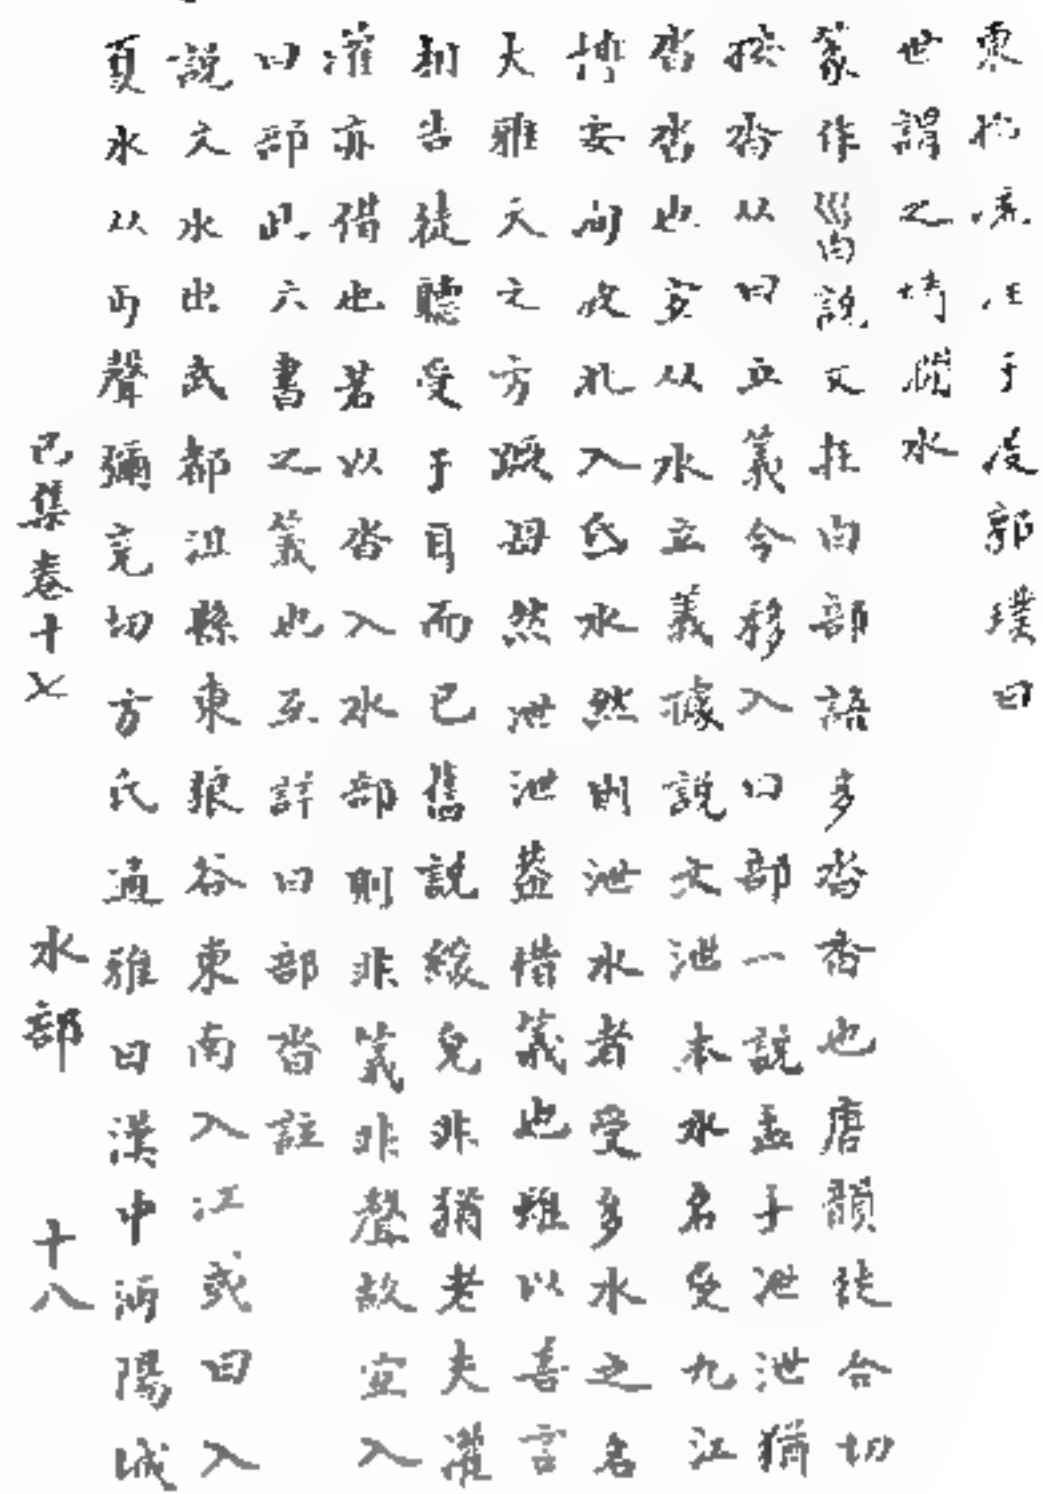 東抱流注于皮郭璞曰
世謂之𡺳澗水
篆作㴽說文在白部語多沓沓也唐韻徒合切
按沓从曰立義今移入曰部一說孟子泄泄猶
沓沓也實从水立義據說文泄本水名受九江
博安洵波北入氐水然則泄水者受多水之名
大雅天之方蹶毋然泄泄蓋借義也雖以喜言
相告徒聽受于耳而已舊說緩兒非猶老夫灌
灌亦借也若以沓入水部則非義非聲故宜入
曰部此六書之義也互詳曰部沓註
說文水出武都沮縣東狼谷東南入江或曰入
夏水从丏聲彌兗切方氏通雅曰漢中沔陽城
己集卷十七
水部
十八